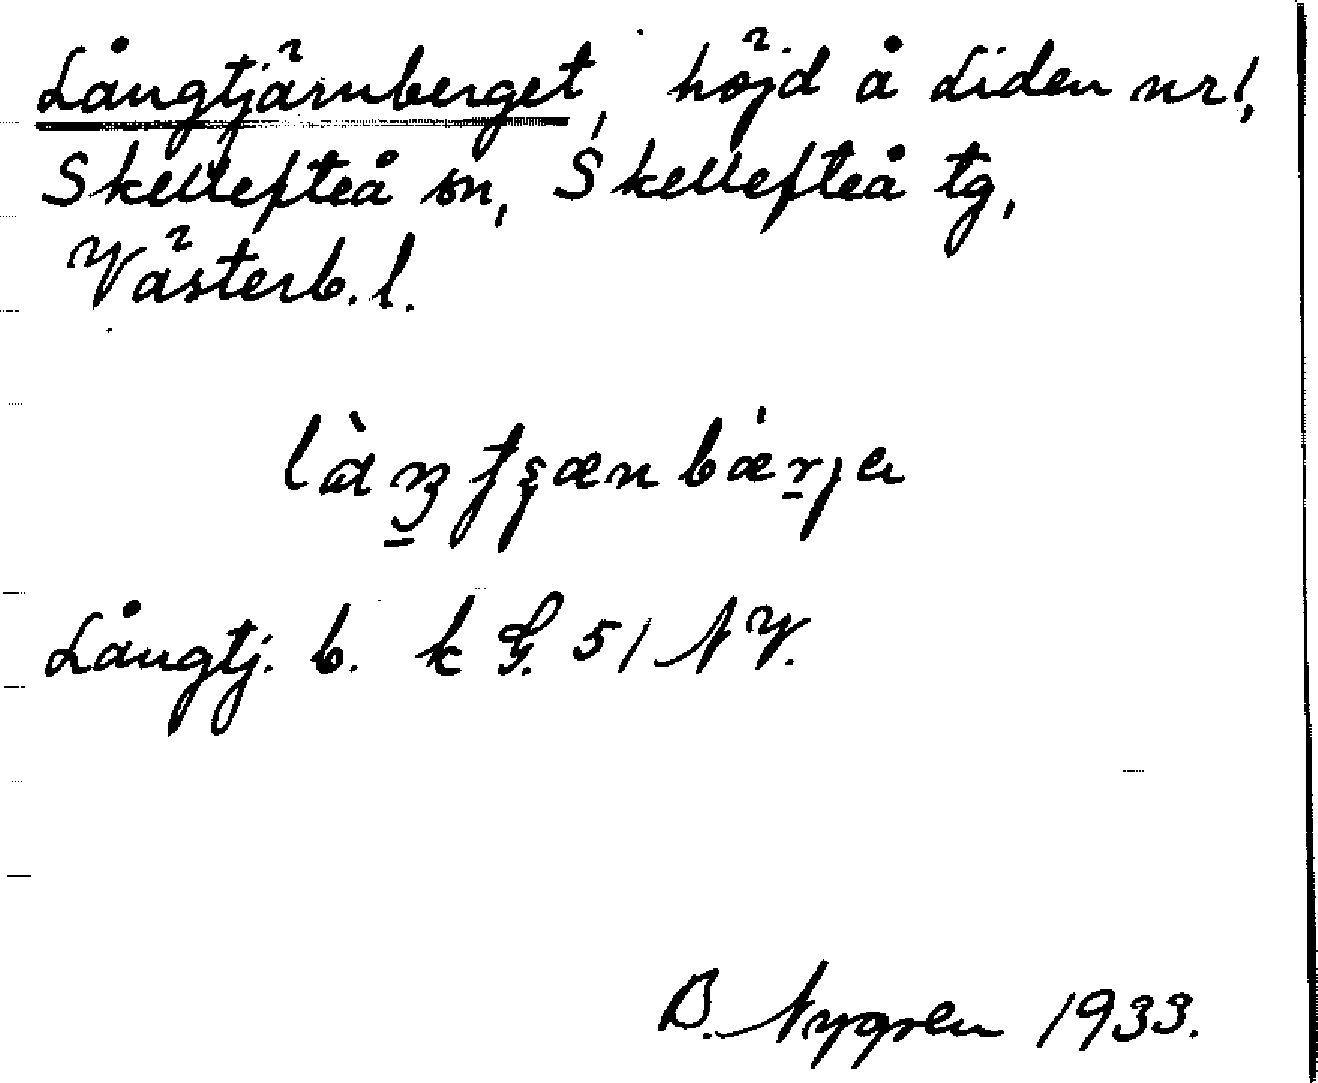 Långtjärnberget, höjd å Liden nr 1,
Skellefteå sn, Skellefteå tg,
Västerb. l.
Långtj. b. k G. 51 NV.
B. Nygren 1933.